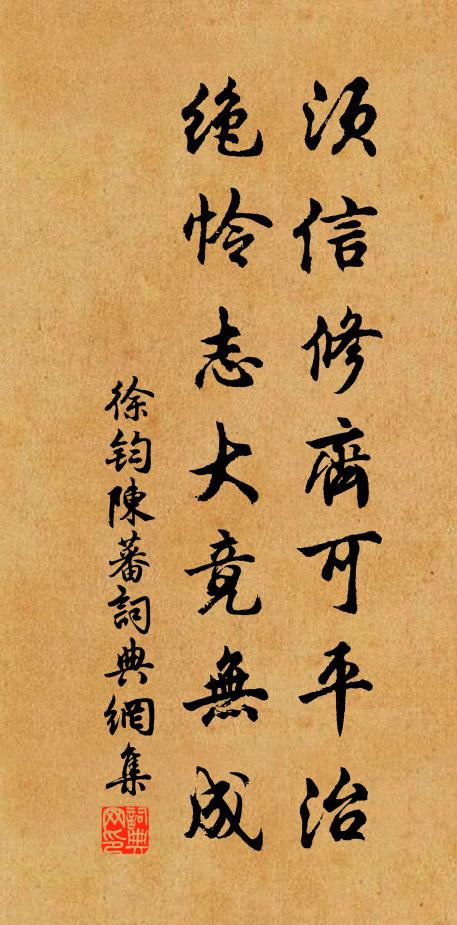 須信修齊可平治
絶怜志大竟無成
徐鈞陳蕃詞典網集
詞典网印